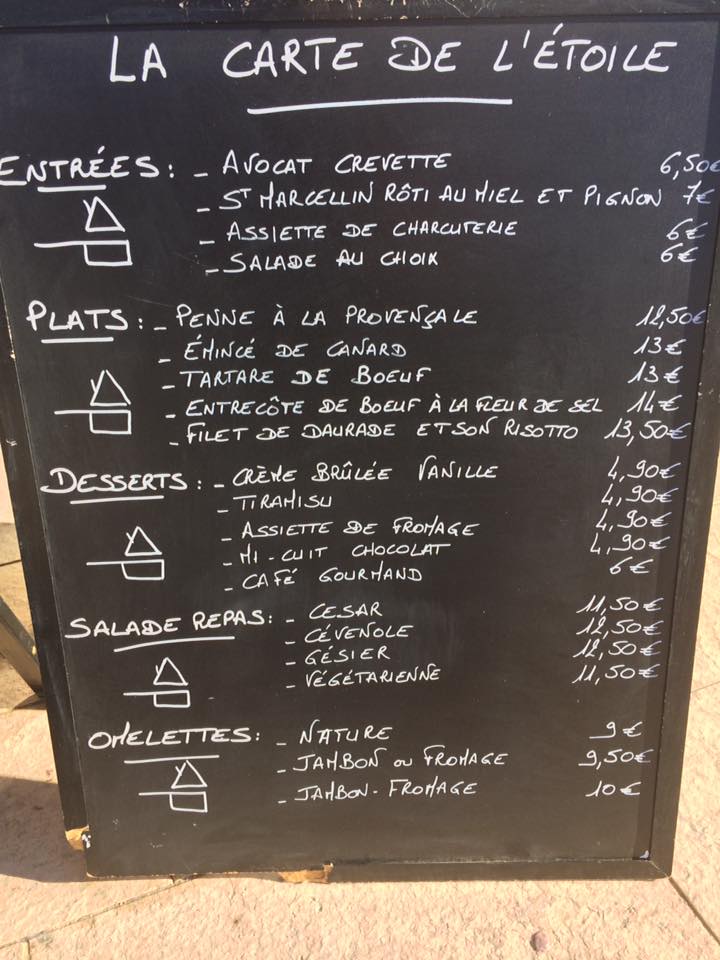 LA CARTE DE L'ÉTOILE
ENTRÉES : - AVOCAT CREVETTE 6,50€
- ST MARCELLIN RÔTI AU MIEL ET PIGNON 7€
- ASSIETTE DE CHARCUTERIE 6€
- SALADE AU CHOIX 6€
PLATS : - PENNE À LA PROVENÇALE 12,50€
- ÉMINCÉ DE CANARD 13€
- TARTARE DE BOEUF 13€
- ENTRECÔTE DE BOEUF À LA FLEUR DE SEL 14€
- FILET DE DAURADE ET SON RISOTTO 13,50€
DESSERTS : - CRÈME BRÛLÉE VANILLE 4,90€
- TIRAMISU 4,90€
- ASSIETTE DE FROMAGE 4,90€
- MI-CUIT CHOCOLAT 4,90€
- CAFÉ GOURMAND 6€
SALADE REPAS : - CESAR 11,50€
- CÉVENOLE 12,50€
- GÉSIER 12,50€
- VÉGÉTARIENNE 11,50€
OMELETTES : - NATURE 9€
- JAMBON OU FROMAGE 9,50€
- JAMBON-FROMAGE 10€